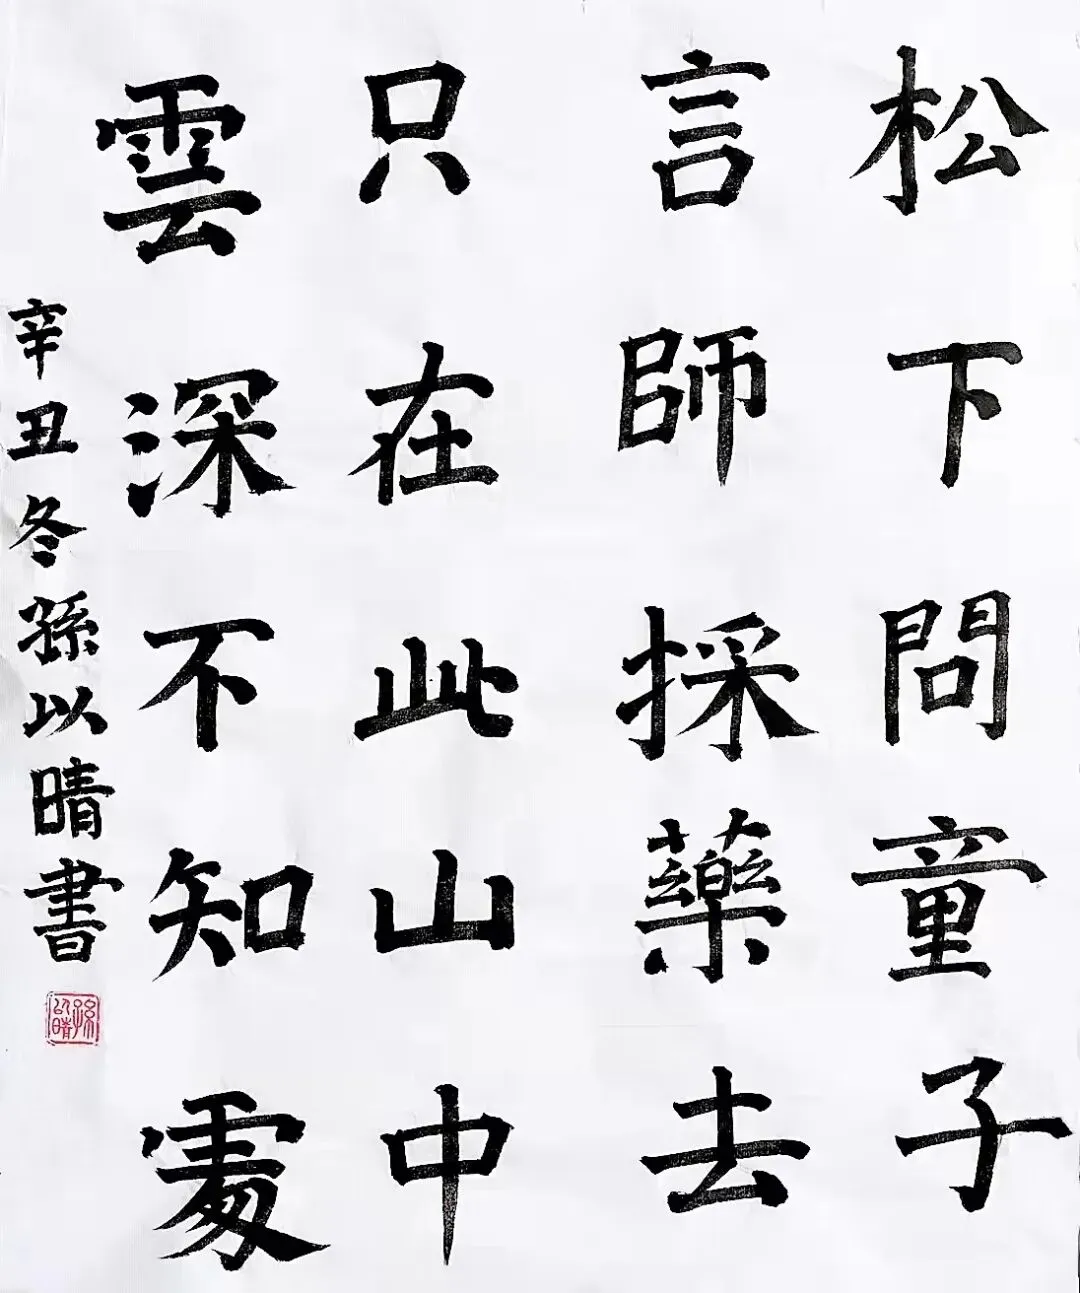 松下問童子
言師採藥去
只在此山中
雲深不知處
辛丑冬孫以晴書
孫以晴